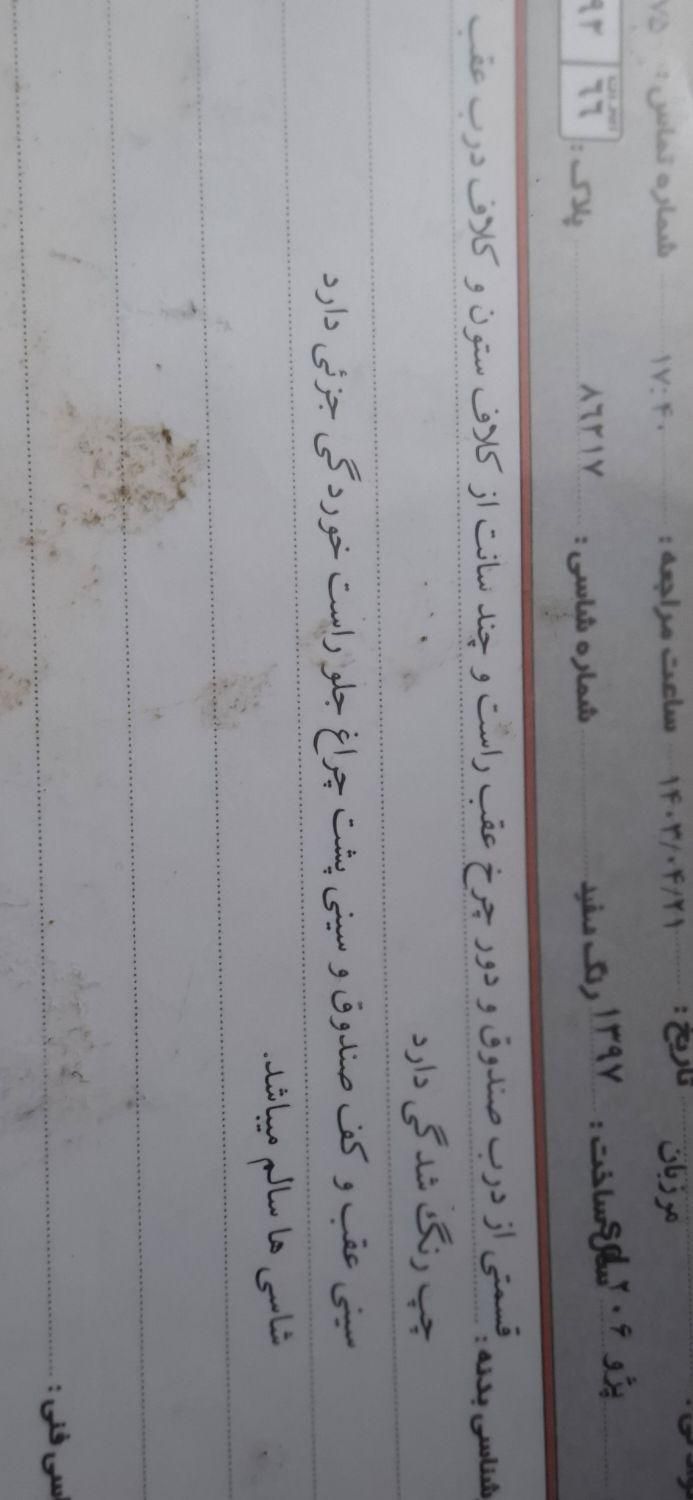 مرزبان تاریخ : ۱۴۰۳/۰۴/۲۱ ساعت مراجعه : ۱۷:۴۰ شماره تماس : ۷۵
پژو ۲۰۶ sd ساخت : ۱۳۹۷ رنگ سفید شماره شاسی : ۸۶۲۱۷ پلاک : ۶۶ ۹۲
شناسی بدنه : قسمتی از درب صندوق و دور چرخ عقب راست و چند سانت از کلاف ستون و کلاف درب عقب
چپ رنگ شدگی دارد
سینی عقب و کف صندوق و سینی پشت چراغ جلو راست خوردگی جزئی دارد
شاسی ها سالم میباشد.
اسی فنی :